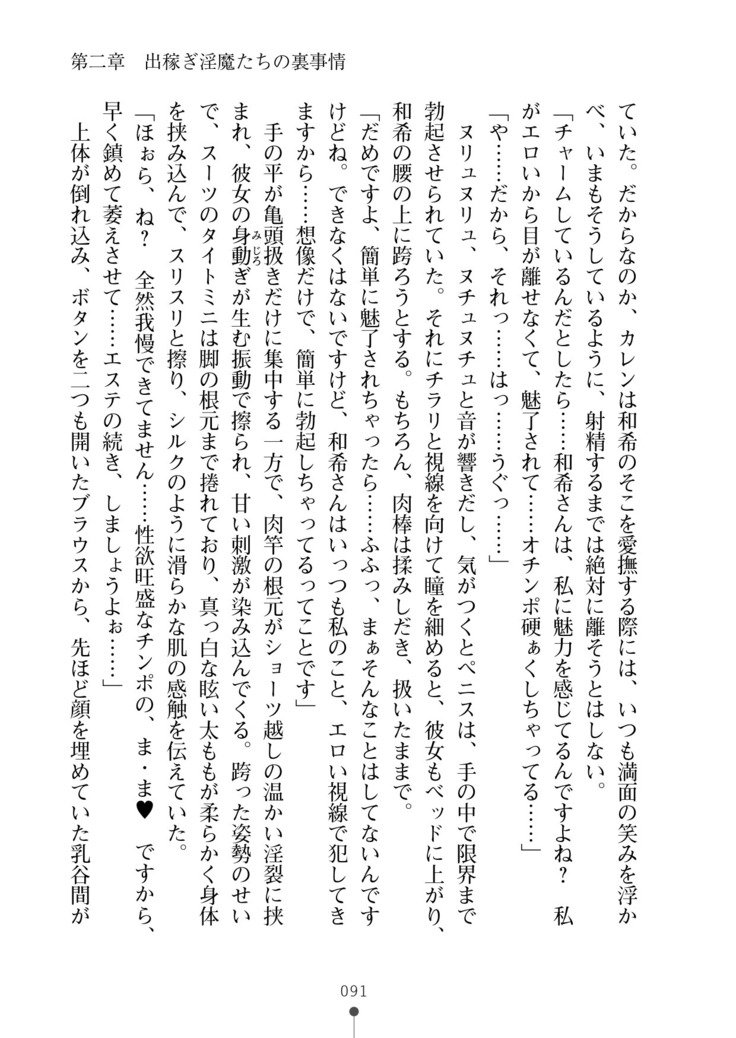 第二章　出稼ぎ淫魔たちの裏事情
ていた。だからなのか、カレンは和希のそこを愛撫する際には、いつも満面の笑みを浮か
べ、いまもそうしているように、射精するまでは絶対に離そうとはしない。
「チャームしているんだとしたら……和希さんは、私に魅力を感じてるんですよね？　私
がエロいから目が離せなくて、魅了されて……オチンポ硬ぁくしちゃってる……」
「や……だから、それっ……はっ……うぐっ……」
　ヌリュヌリュ、ヌチュヌチュと音が響きだし、気がつくとペニスは、手の中で限界まで
勃起させられていた。それにチラリと視線を向けて瞳を細めると、彼女もベッドに上がり、
和希の腰の上に跨ろうとする。もちろん、肉棒は揉みしだき、扱いたままで。
「だめですよ、簡単に魅了されちゃったら……ふふっ、まぁそんなことはしてないんです
けどね。できなくはないですけど、和希さんはいっつも私のこと、エロい視線で犯してき
ますから……想像だけで、簡単に勃起しちゃってるってことです」
　手の平が亀頭扱きだけに集中する一方で、肉竿の根元がショーツ越しの温かい淫裂に挟
まれ、彼女の身動みじろぎが生む振動で擦られ、甘い刺激が染み込んでくる。跨った姿勢のせい
で、スーツのタイトミニは脚の根元まで捲れており、真っ白な眩い太ももが柔らかく身体
を挟み込んで、スリスリと擦り、シルクのように滑らかな肌の感触を伝えていた。
「ほぉら、ね？　全然我慢できてません……性欲旺盛なチンポの、ま・ま♥　ですから、
早く鎮めて萎えさせて……エステの続き、しましょうよぉ……」
　上体が倒れ込み、ボタンを二つも開いたブラウスから、先ほど顔を埋めていた乳谷間が
091